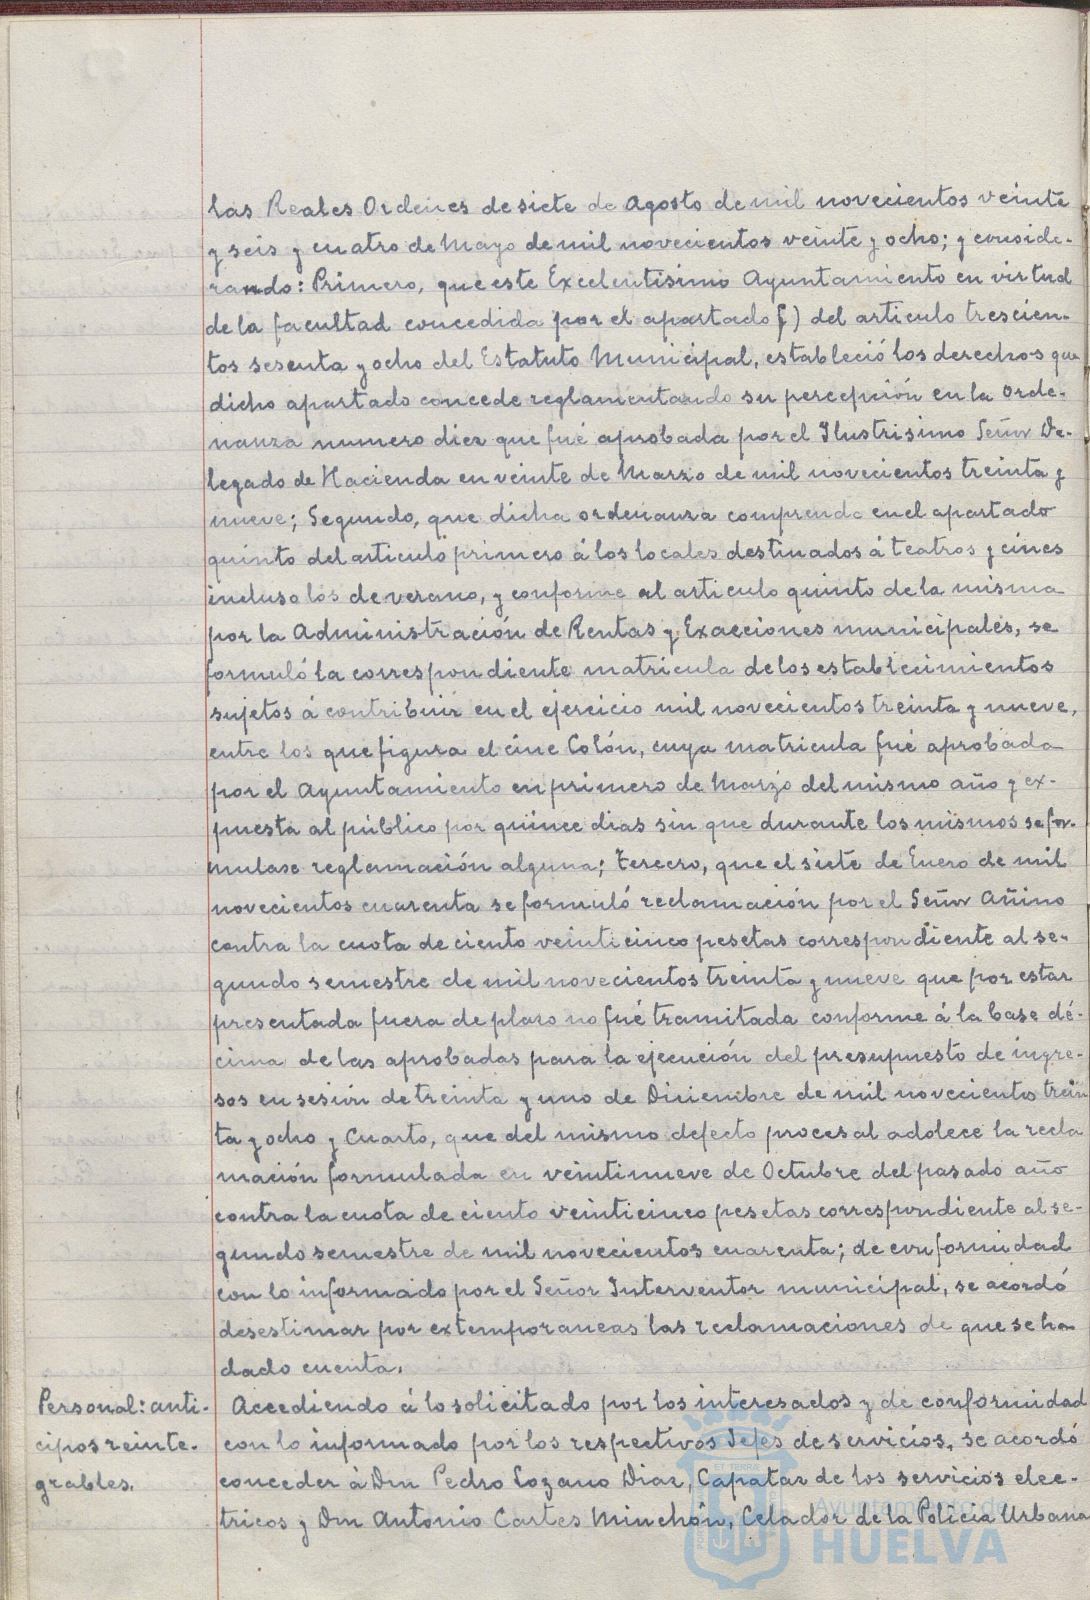 las Reales Ordenes de siete de Agosto de mil novecientos veinte
y seis y cuatro de Mayo de mil novecientos veinte y ocho; y conside-
rando: Primero, que este Excelentisimo Ayuntamiento en virtud
de la facultad concedida por el apartado f) del articulo trescien-
tos sesenta y ocho del Estatuto Municipal, estableció los derechos que
dicho apartado concede reglamentando su percepción en la Orde-
nanza numero diez que fué aprobada por el Ilustrisimo Señor De-
legado de Hacienda en veinte de Marzo de mil novecientos treinta y
nueve; Segundo, que dicha ordenanza comprende en el apartado
quinto del articulo primero á los locales destinados á teatros y cines
incluso los de verano, y conforme al articulo quinto de la misma
por la Administración de Rentas y Exacciones municipales, se
formuló la correspondiente matricula de los establecimientos
sujetos á contribuir en el ejercicio mil novecientos treinta y nueve,
entre los que figura el cine Colón, cuya matricula fué aprobada
por el Ayuntamiento en primero de Marzo del mismo año y ex-
puesta al público por quince dias sin que durante los mismos se for-
mulase reglamación alguna; tercero, que el siete de Enero de mil
novecientos cuarenta se formuló reclamación por el Señor Añino
contra la cuota de ciento veinticinco pesetas correspondiente al se-
gundo semestre de mil novecientos treinta y nueve que por estar
presentada fuera de plazo no fué tramitada conforme á la base dé-
cima de las aprobadas para la ejecución del presupuesto de ingre-
sos en sesión de treinta y uno de Diciembre de mil novecientos trein
ta y ocho y Cuarto, que del mismo defecto procesal adolece la recla
mación formulada en veintinueve de Octubre del pasado año
contra la cuota de ciento veinticinco pesetas correspondiente al se-
gundo semestre de mil novecientos cuarenta; de conformidad
con lo informado por el Señor Interventor municipal, se acordó
desestimar por extemporaneas las reclamaciones de que se ha
dado cuenta.
Personal: anti-
cipos reinte-
grables.
Accediendo á lo solicitado por los interesados y de conformidad
con lo informado por los respectivos Jefes de servicios, se acordó
conceder á Don Pedro Lozano Diaz, Capataz de los servicios eléc-
tricos y Don Antonio Cartes Minchón, Celador de la Policia Urbana
Ayuntamiento de
HUELVA